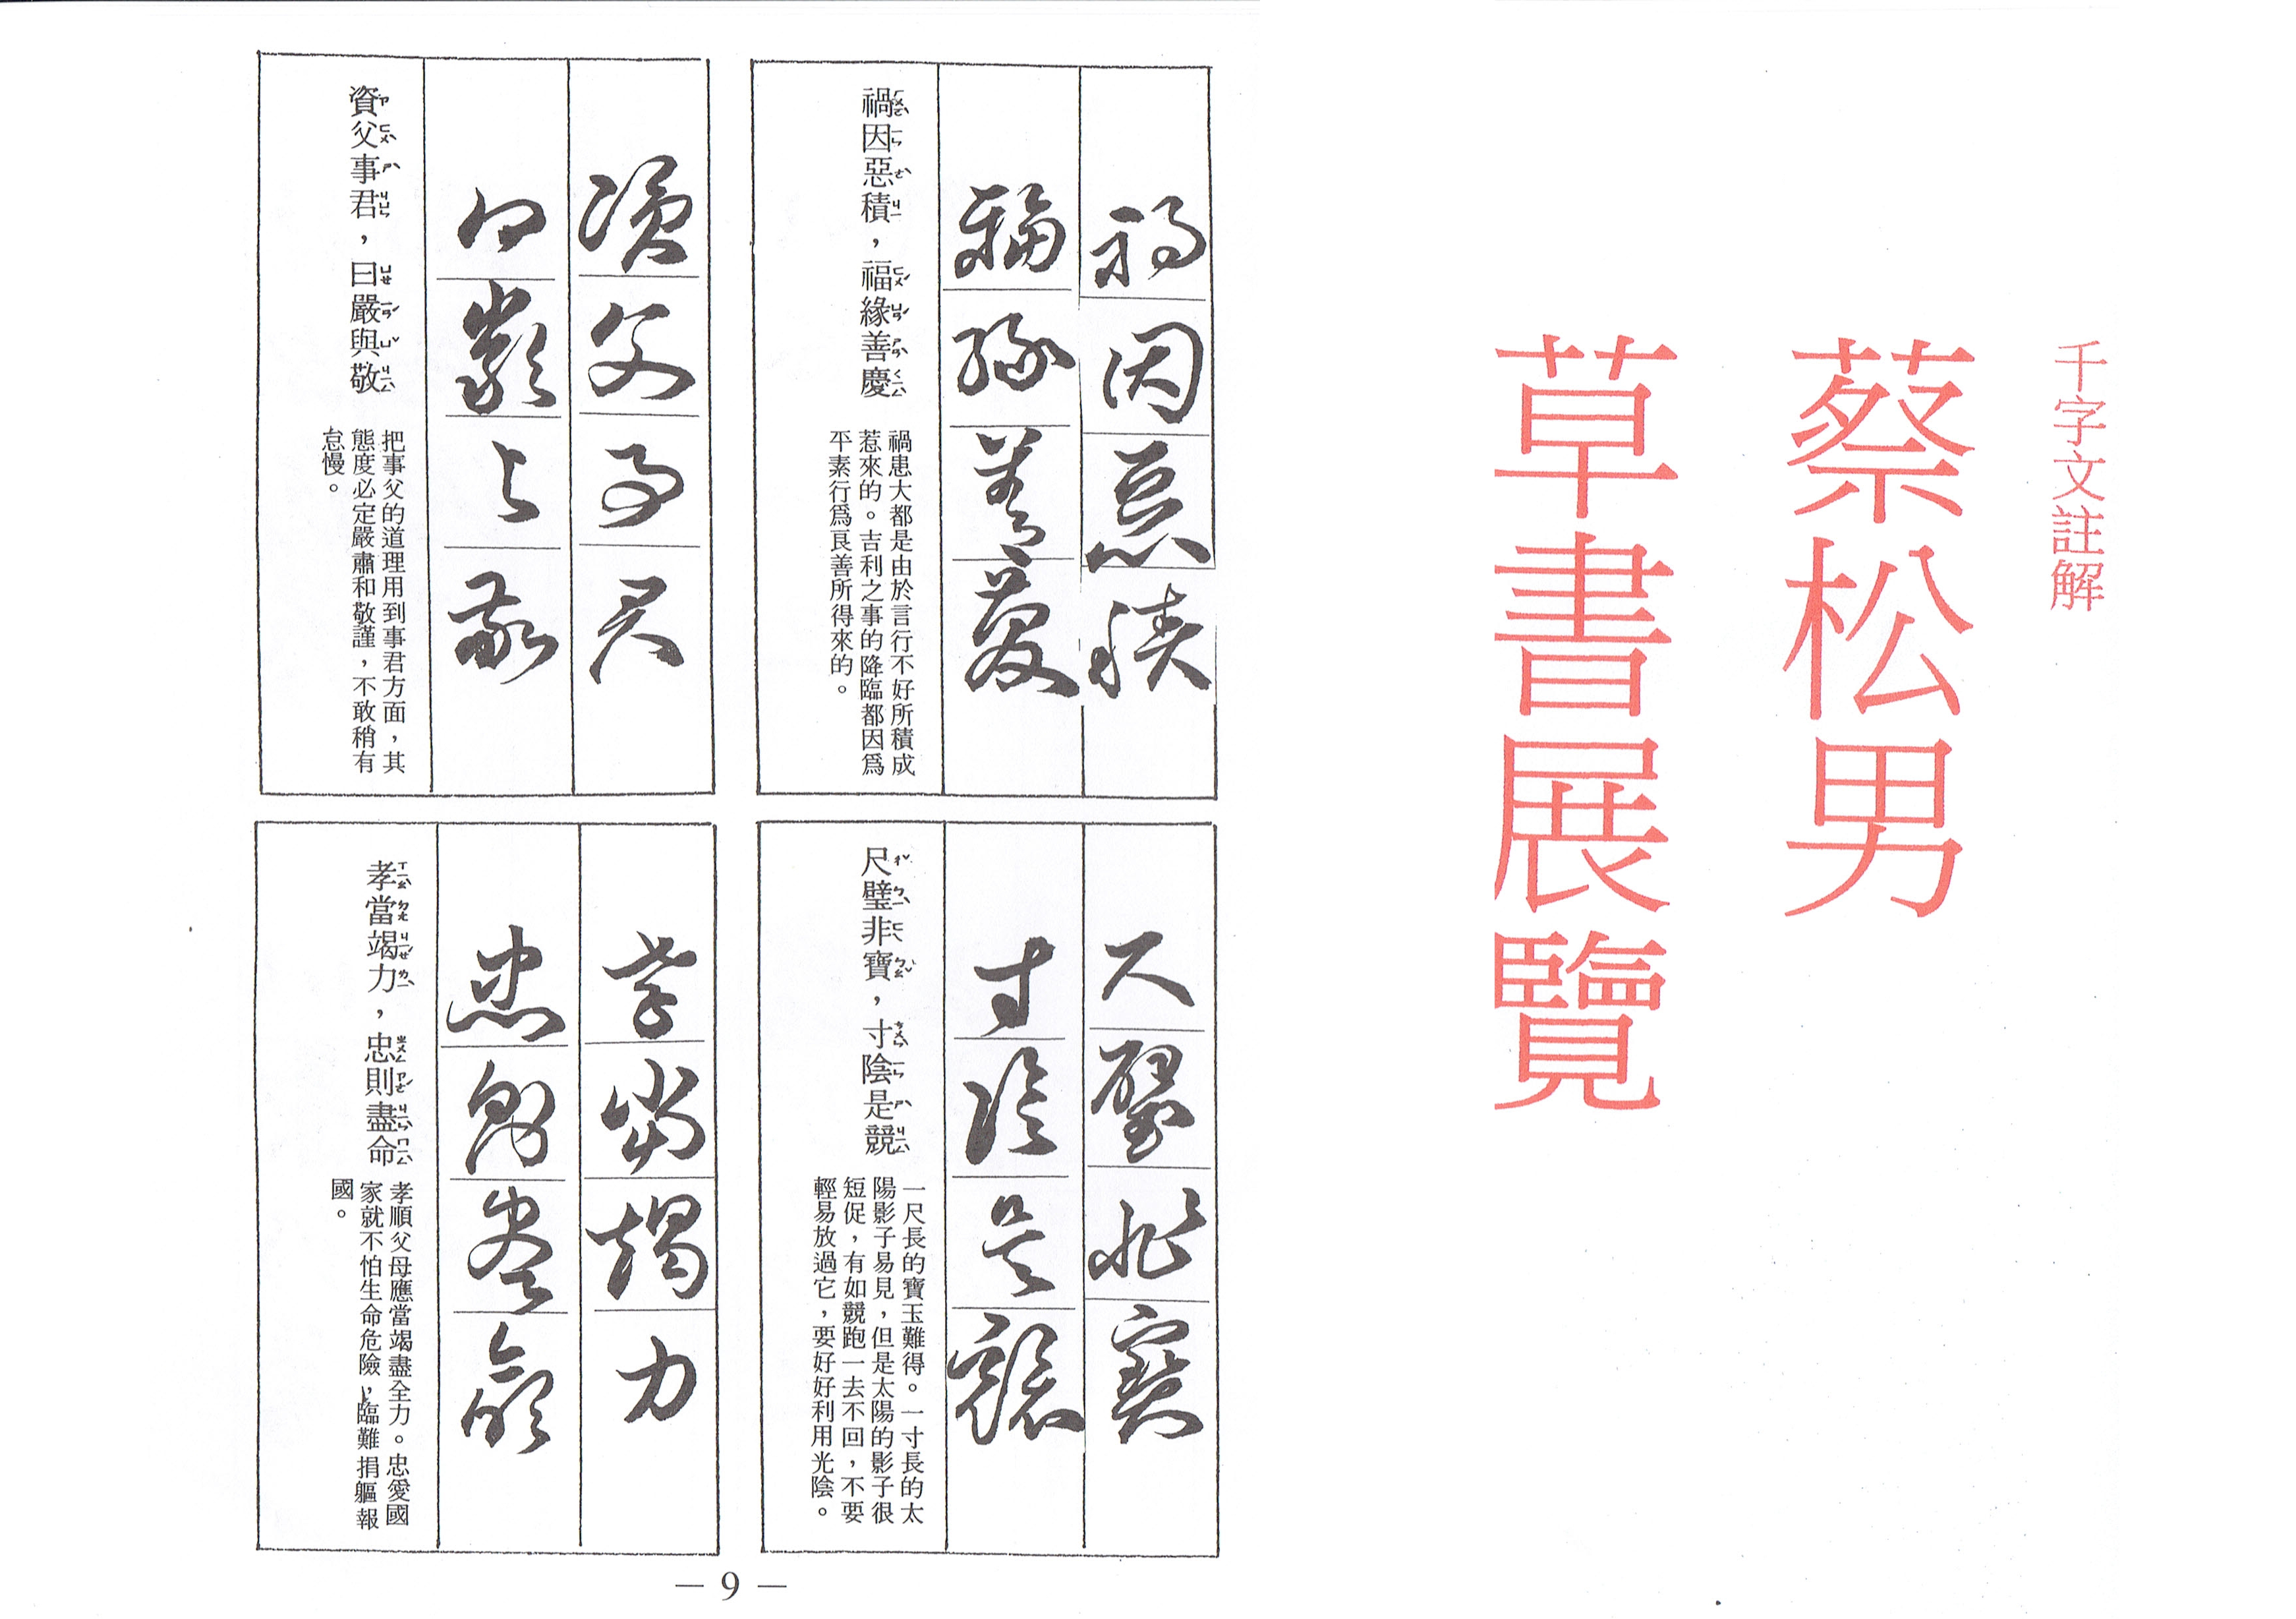 千字文註解
蔡松男
草書展覽
禍因惡積
福緣善慶
禍因惡積，福緣善慶
禍患大都是由於言行不好所積成
惹來的。吉利之事的降臨都因爲
平素行爲良善所得來的。
尺璧非寶
寸陰是競
尺璧非寶，寸陰是競
一尺長的寶玉難得。一寸長的太
陽影子易見，但是太陽的影子很
短促，有如競跑一去不回，不要
輕易放過它，要好好利用光陰。
資父事君
曰嚴與敬
資父事君，曰嚴與敬
把事父的道理用到事君方面，其
態度必定嚴肅和敬謹，不敢稍有
怠慢。
孝當竭力
忠則盡命
孝當竭力，忠則盡命
孝順父母應當竭盡全力。忠愛國
家就不怕生命危險，臨難捐軀報
國。
— 9 —